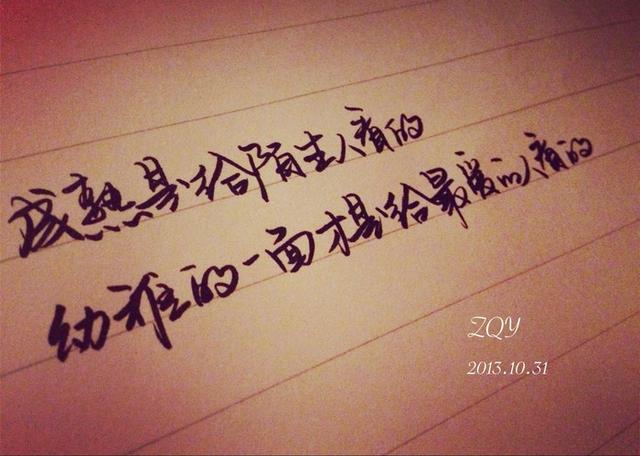 成熟是给陌生人看的
幼稚的一面才是给最爱的人看的
ZQY
2013.10.31